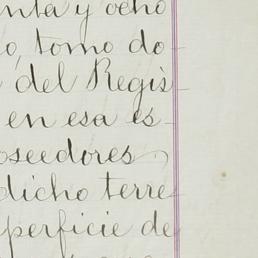 nta y ocho
o, tomo do-
del Regis-
en esa es-
oseedores
dicho terre
perficie de